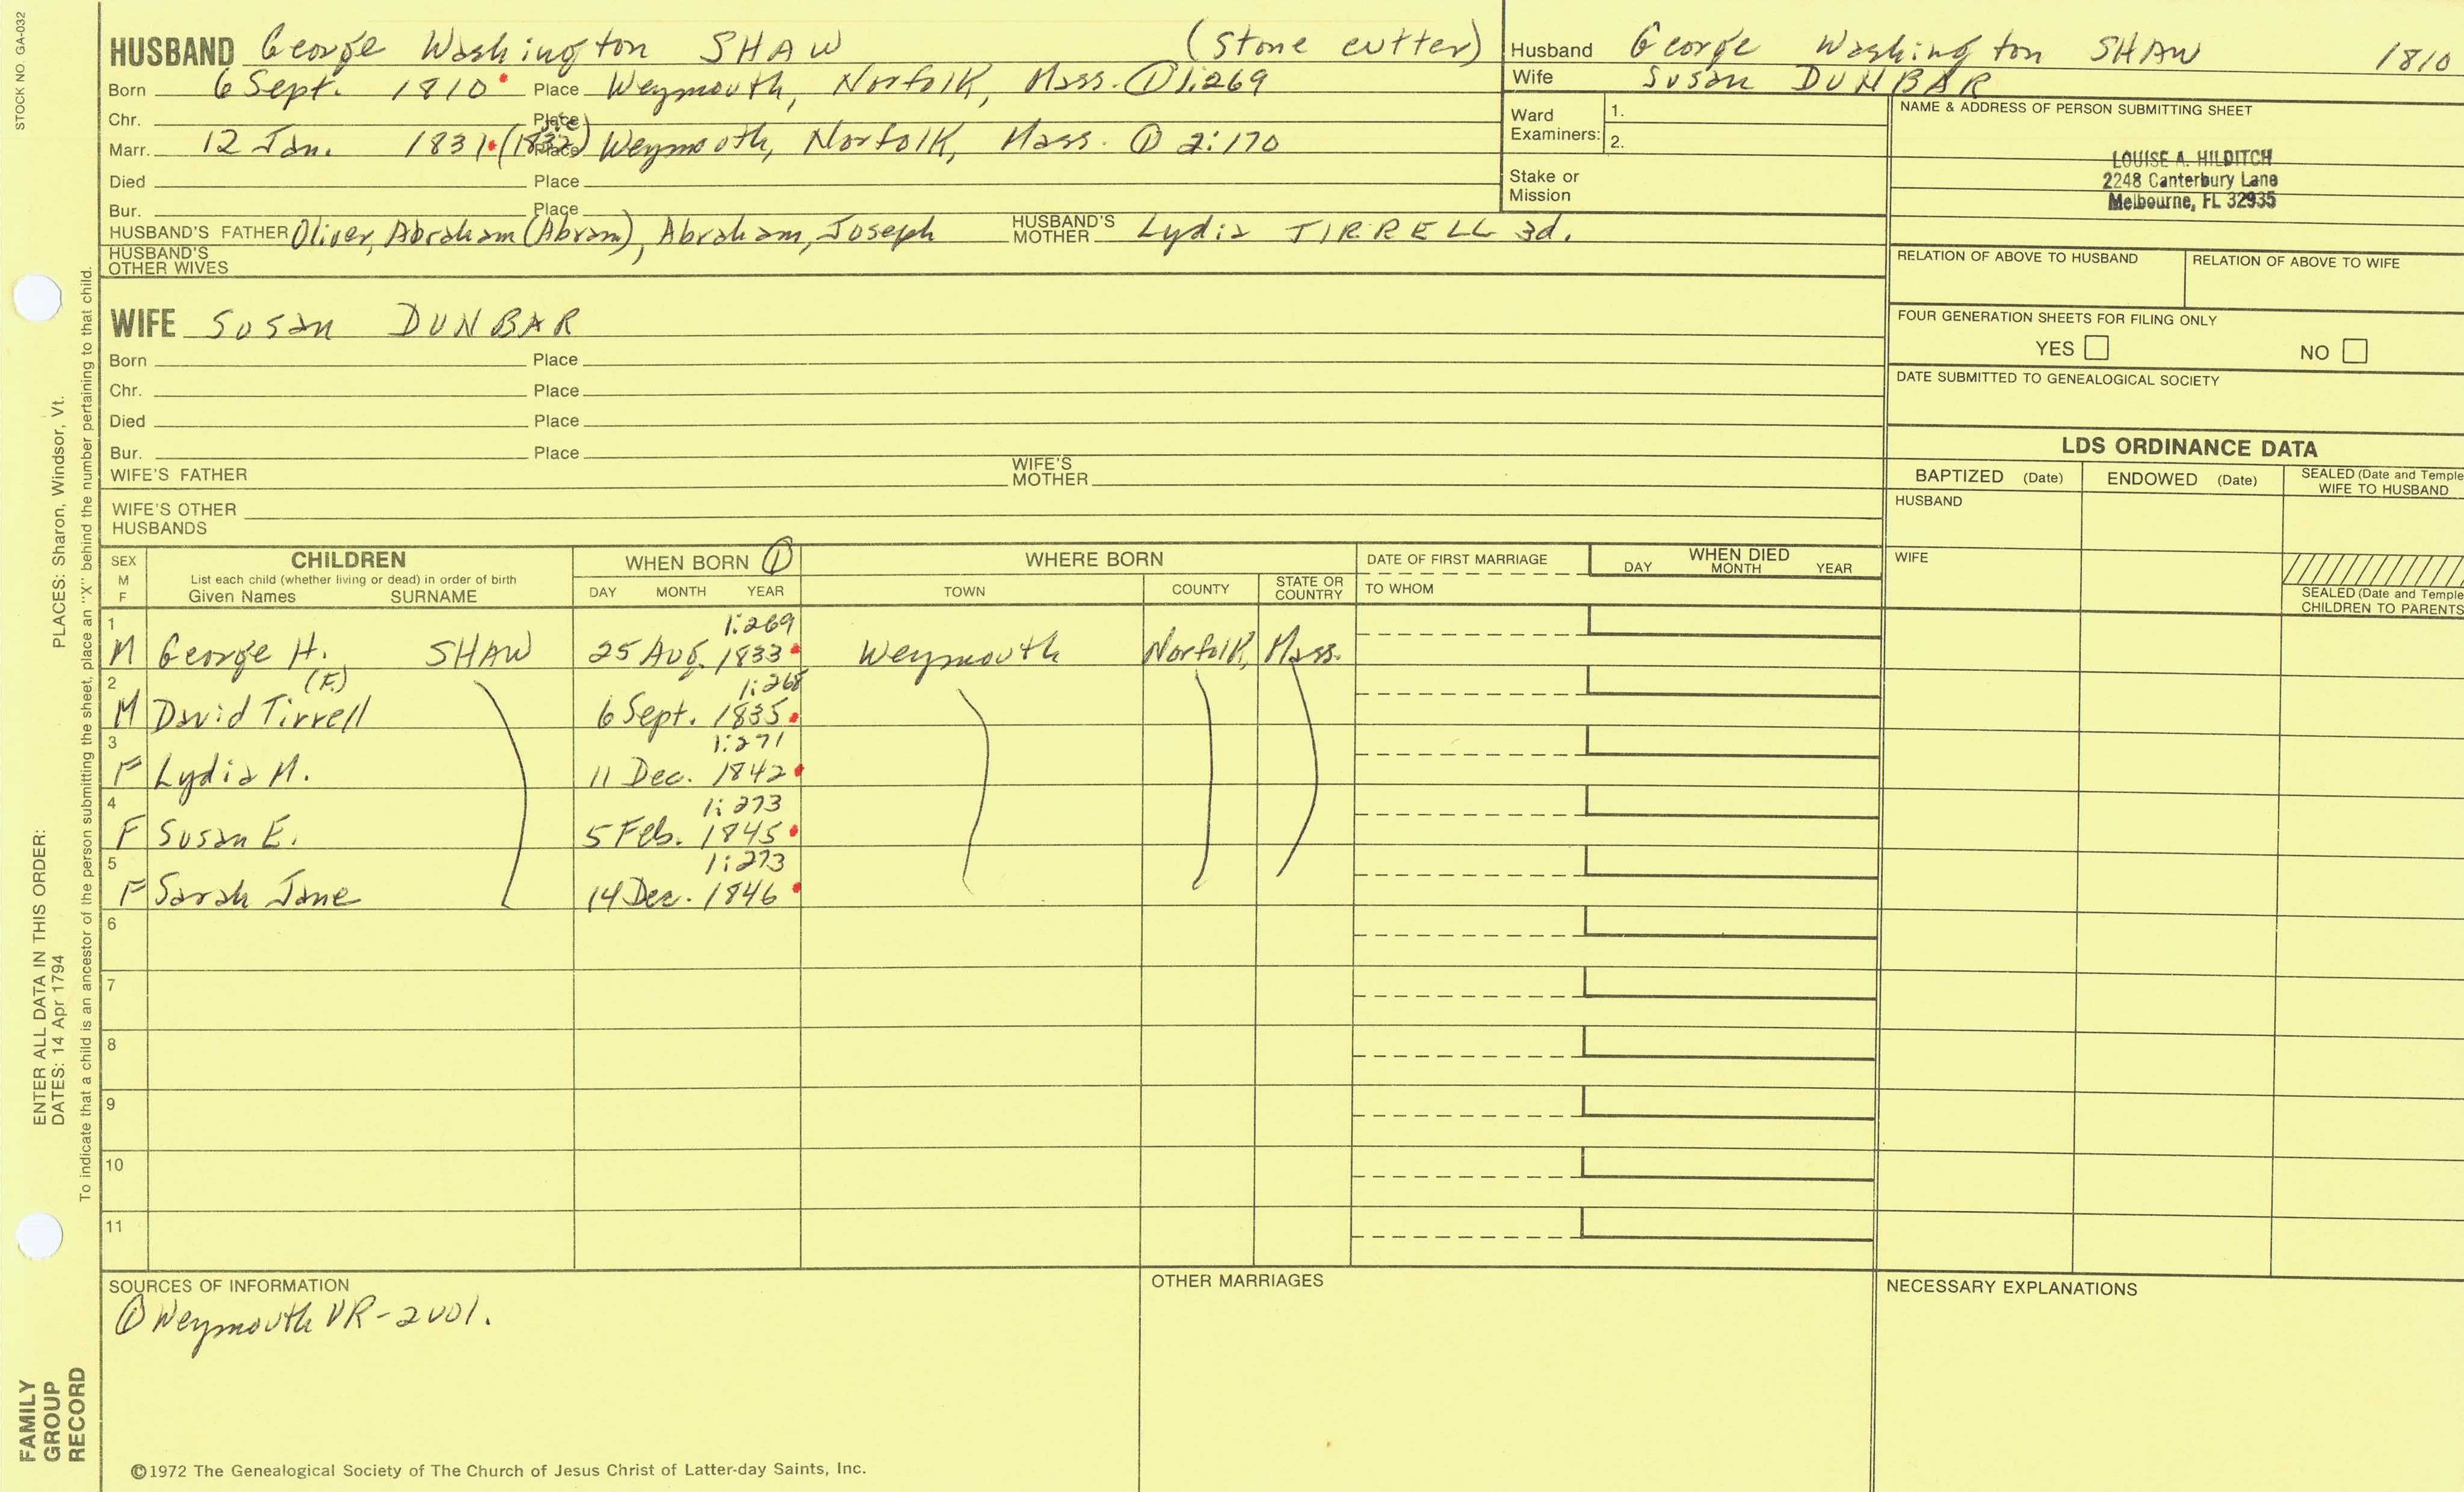 STOCK NO. GA-032
HUSBAND George Washington SHAW (Stone cutter)
Born 6 Sept. 1810 Place Weymouth, Norfolk, Mass. ① 1:269
Chr. Place
Marr. 12 Jan. 1831 (1832) Place Weymouth, Norfolk, Mass. ① 2:170
Died Place
Bur. Place
HUSBAND'S FATHER Oliver, Abraham (Abram), Abraham, Joseph HUSBAND'S MOTHER Lydia TIRRELL 3d.
HUSBAND'S OTHER WIVES
Husband George Washington SHAW 1810
Wife Susan DUNBAR
Ward Examiners: 1.
2.
Stake or Mission
NAME & ADDRESS OF PERSON SUBMITTING SHEET
LOUISE A. HILDITCH
2248 Canterbury Lane
Melbourne, FL 32935
RELATION OF ABOVE TO HUSBAND RELATION OF ABOVE TO WIFE
FOUR GENERATION SHEETS FOR FILING ONLY
YES NO
DATE SUBMITTED TO GENEALOGICAL SOCIETY
WIFE Susan DUNBAR
Born Place
Chr. Place
Died Place
Bur. Place
WIFE'S FATHER WIFE'S MOTHER
WIFE'S OTHER HUSBANDS
LDS ORDINANCE DATA
BAPTIZED (Date) ENDOWED (Date) SEALED (Date and Temple
WIFE TO HUSBAND
HUSBAND
WIFE
SEALED (Date and Temple
CHILDREN TO PARENTS
SEX M F CHILDREN WHEN BORN ① WHERE BORN DATE OF FIRST MARRIAGE WHEN DIED
List each child (whether living or dead) in order of birth
Given Names SURNAME DAY MONTH YEAR TOWN COUNTY STATE OR COUNTRY TO WHOM DAY MONTH YEAR
1 1:269
M George H. SHAW 25 Aug. 1833 Weymouth Norfolk, Mass.
2 (F.) 1:268
M David Tirrell 6 Sept. 1835
3 1:271
F Lydia M. 11 Dec. 1842
4 1:273
F Susan E. 5 Feb. 1845
5 1:273
F Sarah Jane 14 Dec. 1846
6
7
8
9
10
11
SOURCES OF INFORMATION
① Weymouth VR-2 vol.
OTHER MARRIAGES
NECESSARY EXPLANATIONS
©1972 The Genealogical Society of The Church of Jesus Christ of Latter-day Saints, Inc.
ENTER ALL DATA IN THIS ORDER:
DATES: 14 Apr 1794 PLACES: Sharon, Windsor, Vt.
To indicate that a child is an ancestor of the person submitting the sheet, place an "X" behind the number pertaining to that child.
FAMILY
GROUP
RECORD